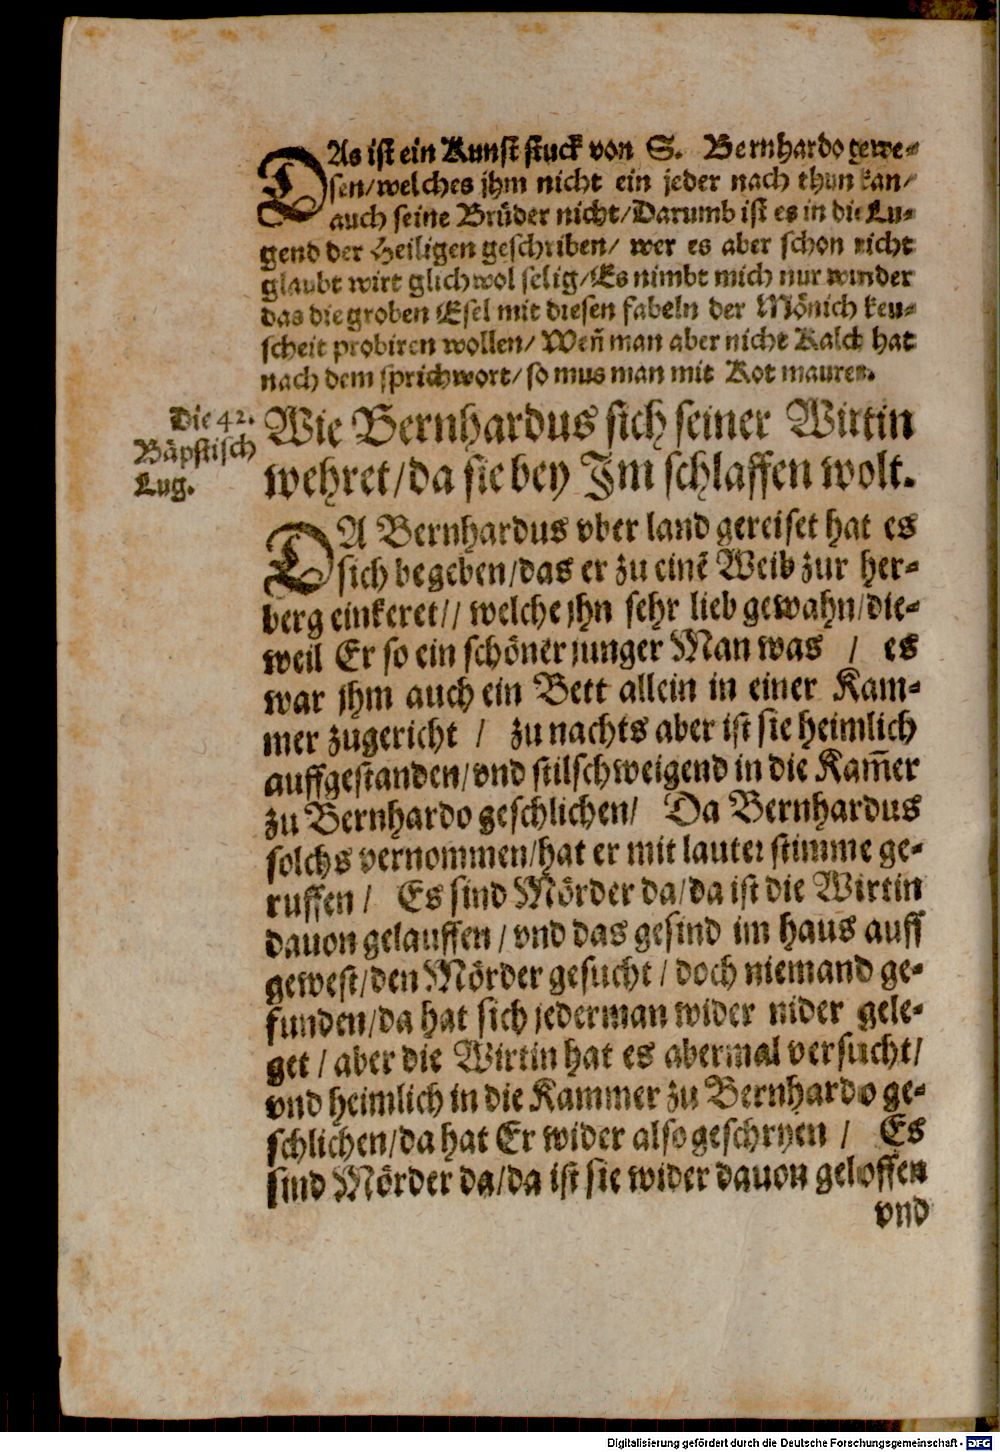 DAs ist ein Kunst stuck von S. Bernhardo gewe-
sen/welches jhm nicht ein jeder nach thun kan/
auch seine Brüder nicht/Darumb ist es in die Lu-
gend der Heiligen geschriben/ wer es aber schon nicht
glaubt wirt glichwol selig/Es nimbt mich nur wunder
das die groben Esel mit diesen fabeln der Mönich keu-
scheit probiren wollen/ Wen̄ man aber nicht Kalck hat
nach dem sprichwort/ so mus man mit Kot mauren.
Die 42.
Bäpstisch
Lug.
Wie Bernhardus sich seiner Wirtin
wehret/da sie bey Jm schlaffen wolt.
DA Bernhardus vber land gereiset hat es
sich begeben/das er zu einē Weib zur her-
berg einkeret// welche jhn sehr lieb gewahn/die-
weil Er so ein schöner junger Man was / es
war jhm auch ein Bett allein in einer Kam-
mer zugericht / zu nachts aber ist sie heimlich
auffgestanden/vnd stilschweigend in die Kam̄er
zu Bernhardo geschlichen/ Da Bernhardus
solchs vernommen/hat er mit lauter stimme ge-
ruffen / Es sind Mörder da/da ist die Wirtin
dauon gelauffen / vnd das gesind im haus auff
gewest/den Mörder gesucht / doch niemand ge-
funden/da hat sich jederman wider nider gele-
get / aber die Wirtin hat es abermal versucht/
vnd heimlich in die Kammer zu Bernhardo ge-
schlichen/da hat Er wider also geschryen / Es
sind Mörder da/da ist sie wider dauon geloffen
vnd
Digitalisierung gefördert durch die Deutsche Forschungsgemeinschaft - DFG